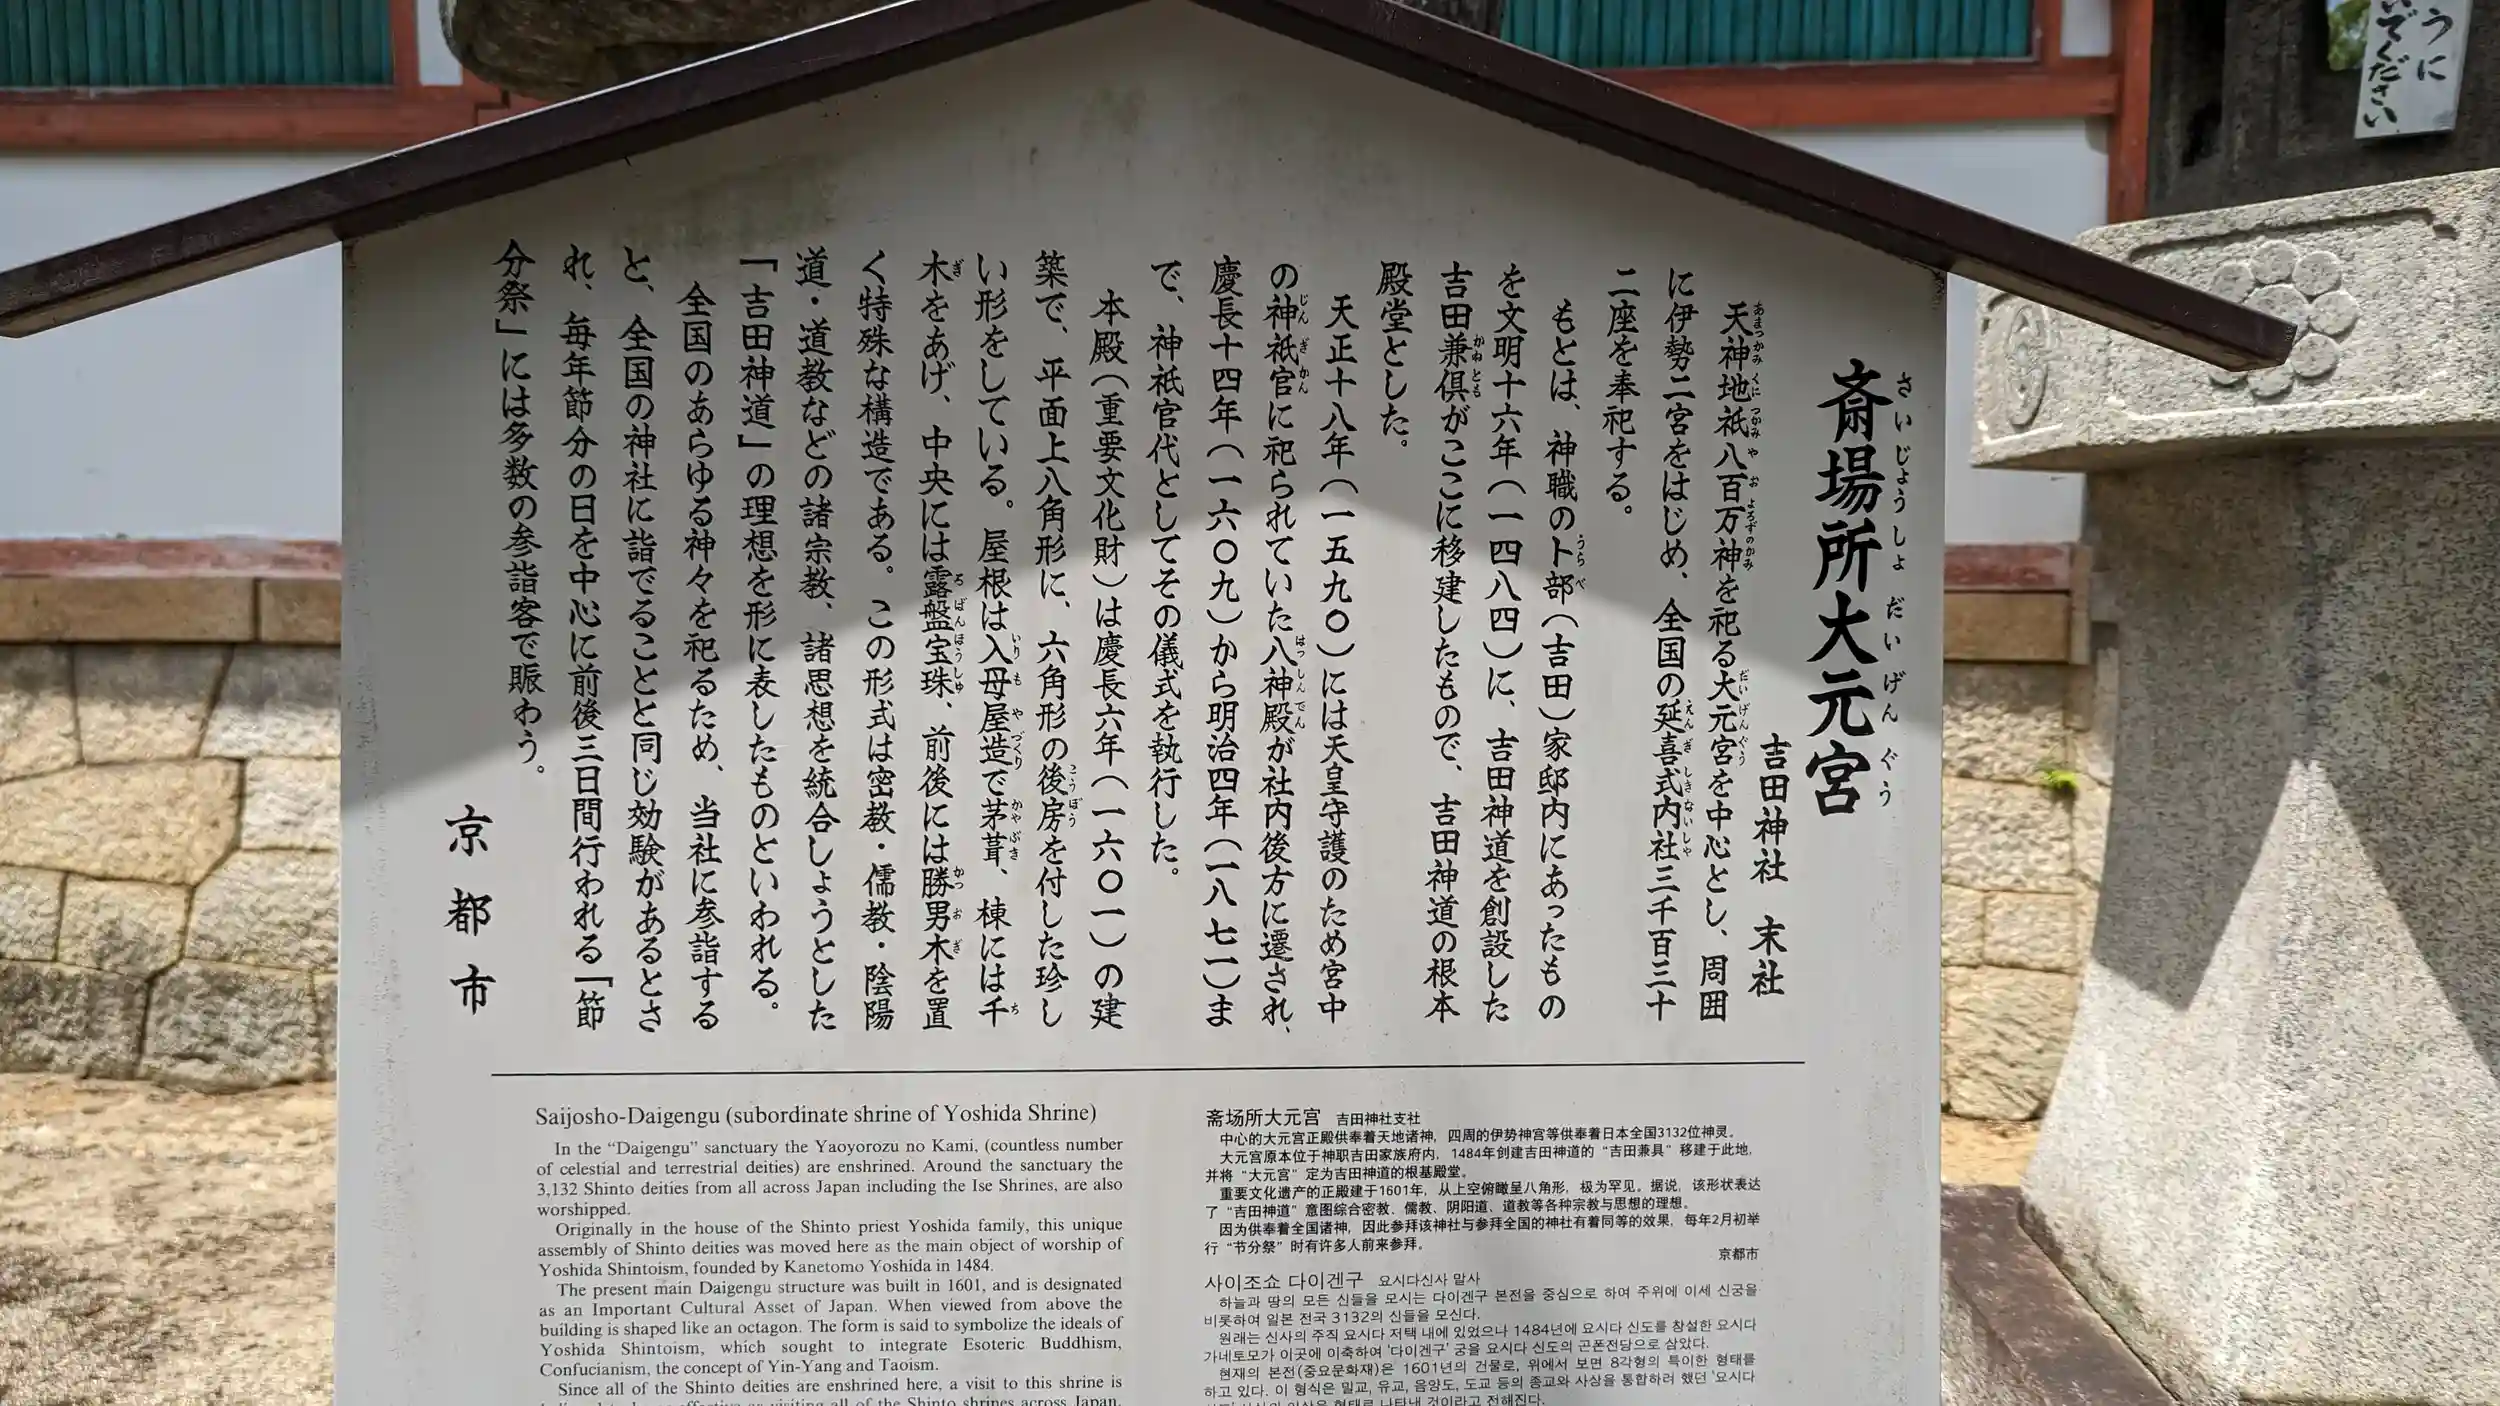 斎場所大元宮
さいじょうしょ だいげんぐう
吉田神社 末社
天神地祇八百万神を祀る大元宮を中心とし、周囲
に伊勢二宮をはじめ、全国の延喜式内社三千百三十
二座を奉祀する。
もとは、神職の卜部(吉田)家邸内にあったもの
を文明十六年(一四八四)に、吉田神道を創設した
吉田兼倶がここに移建したもので、吉田神道の根本
殿堂とした。
天正十八年(一五九〇)には天皇守護のため宮中
の神祇官に祀られていた八神殿が社内後方に遷され、
慶長十四年(一六〇九)から明治四年(一八七一)ま
で、神祇官代としてその儀式を執行した。
本殿(重要文化財)は慶長六年(一六〇一)の建
築で、平面上八角形に、六角形の後房を付した珍し
い形をしている。屋根は入母屋造で茅葺、棟には千
木をあげ、中央には露盤宝珠、前後には勝男木を置
く特殊な構造である。この形式は密教・儒教・陰陽
道・道教などの諸宗教、諸思想を統合しようとした
「吉田神道」の理想を形に表したものといわれる。
全国のあらゆる神々を祀るため、当社に参詣する
と、全国の神社に詣でることと同じ効験があるとさ
れ、毎年節分の日を中心に前後三日間行われる「節
分祭」には多数の参詣客で賑わう。
京都市
Saijosho-Daigengu (subordinate shrine of Yoshida Shrine)
In the “Daigengu” sanctuary the Yaoyorozu no Kami, (countless number
of celestial and terrestrial deities) are enshrined. Around the sanctuary the
3,132 Shinto deities from all across Japan including the Ise Shrines, are also
worshipped.
Originally in the house of the Shinto priest Yoshida family, this unique
assembly of Shinto deities was moved here as the main object of worship of
Yoshida Shintoism, founded by Kanetomo Yoshida in 1484.
The present main Daigengu structure was built in 1601, and is designated
as an Important Cultural Asset of Japan. When viewed from above the
building is shaped like an octagon. The form is said to symbolize the ideals of
Yoshida Shintoism, which sought to integrate Esoteric Buddhism,
Confucianism, the concept of Yin-Yang and Taoism.
Since all of the Shinto deities are enshrined here, a visit to this shrine is
斋场所大元宫 吉田神社支社
中心的大元宫正殿供奉着天地诸神，四周的伊势神宫等供奉着日本全国3132位神灵。
大元宫原本位于神职吉田家族府内，1484年创建吉田神道的“吉田兼具”移建于此地，
并将“大元宫”定为吉田神道的根基殿堂。
重要文化遗产的正殿建于1601年，从上空俯瞰呈八角形，极为罕见。据说，该形状表达
了“吉田神道”意图综合密教、儒教、阴阳道、道教等各种宗教与思想的理想。
因为供奉着全国诸神，因此参拜该神社与参拜全国的神社有着同等的效果，每年2月初举
行“节分祭”时有许多人前来参拜。
京都市
사이조쇼 다이겐구 요시다신사 말사
하늘과 땅의 모든 신들을 모시는 다이겐구 본전을 중심으로 하여 주위에 이세 신궁을
비롯하여 일본 전국 3132의 신들을 모신다.
원래는 신사의 주직 요시다 저택 내에 있었으나 1484년에 요시다 신도를 창설한 요시다
가네토모가 이곳에 이축하여 '다이겐구' 궁을 요시다 신도의 곤폰전당으로 삼았다.
현재의 본전(중요문화재)은 1601년의 건물로, 위에서 보면 8각형의 특이한 형태를
하고 있다. 이 형식은 밀교, 유교, 음양도, 도교 등의 종교와 사상을 통합하려 했던 '요시다
うに
いでください